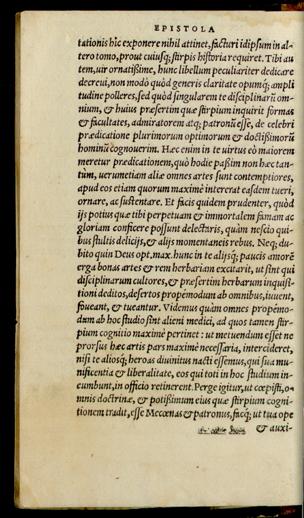 EPISTOLA
tationis hîc exponere nihil attinet, facturi idipsum in al-
tero tomo, prout cuiusq; stirpis historia requiret. Tibi au
tem, uir ornatißime, hunc libellum peculiariter dedicare
decreui, non modò quòd generis claritate opumq; ampli
tudine polleres, sed quòd singularem te disciplinarũ om-
nium, & huius præsertim quæ stirpium inquirit formas
& facultates, admiratorem atq; patronũ esse, de celebri
prædicatione plurimorum optimorum & doctißimorũ
hominũ cognouerim. Hæc enim in te uirtus eò maiorem
meretur prædicationem, quò hodie paßim non hæc tan-
tùm, uerumetiam aliæ omnes artes sunt contemptiores,
apud eos etiam quorum maximè intererat easdem tueri,
ornare, ac sustentare. Et facis quidem prudenter, quòd
ijs potius quæ tibi perpetuam & immortalem famam ac
gloriam conficere possunt delectaris, quàm nescio qui-
bus stultis delicijs, & alijs momentaneis rebus. Neq; du-
bito quin Deus opt. max. hunc in te alijsq; paucis amorẽ
erga bonas artes & rem herbariam excitarit, ut sint qui
disciplinarum cultores, & præsertim herbarum inquisi-
tioni deditos, desertos propemodum ab omnibus, iuuent,
foueant, & tueantur. Videmus quàm omnes propemo-
dum ab hoc studio sint alieni medici, ad quos tamen stir-
pium cognitio maximè pertinet: ut metuendum esset ne
prorsus hæc artis pars maximè necessaria, intercideret,
nisi te aliosq; heroas diuinitus nacti essemus, qui sua mu-
nificentia & liberalitate, eos qui toti in hoc studium in-
cumbunt, in officio retinerent. Perge igitur, ut cœpisti, o-
mnis doctrinæ, & potißimum eius quæ stirpium cogni-
tionem tradit, esse Mecœnas & patronus, facq; ut tua ope
& auxi-